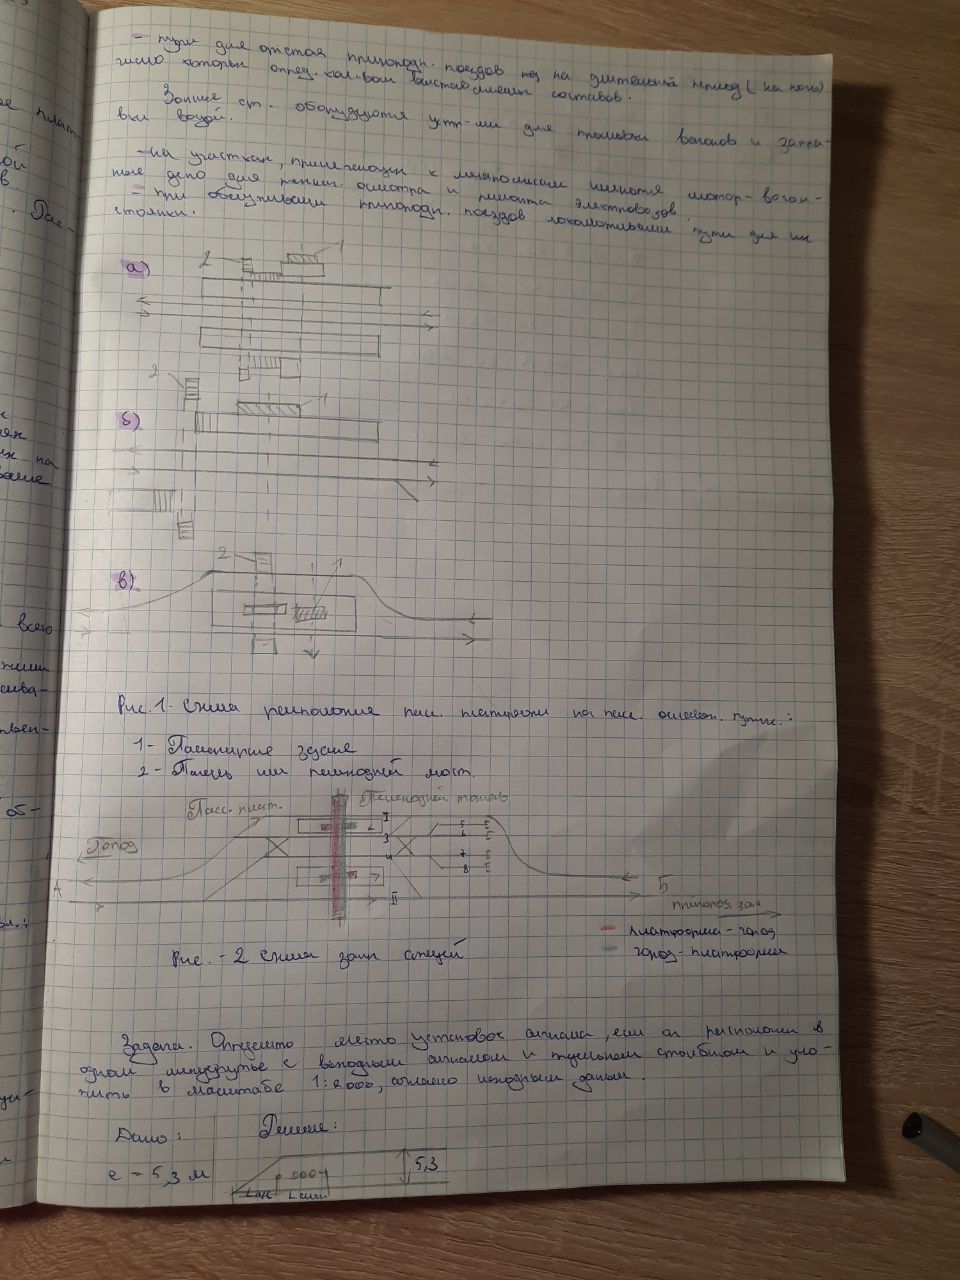 - пути для отстоя пригородн. поездов на длительный период (на ночь)
число которых опред. кол-вом составов.
Зонные ст. оборудуются устр-ми для промывки вагонов и запра-
вки водой.
- на участках, прилегающих к мегаполисам имеются мотор-вагон-
ные депо для ревиз. осмотра и ремонта электровозов.
- при обслуживании пригородн. поездов локомотивами пути для их
стоянки.
а)
2
1
б)
2
1
в)
2
1
Рис. 1. Схема расположения пасс. платформ на пасс. путях.:
1 - Пассажирское здание
2 - или пешеходный мост.
Пасс. плат.
Пешеходный тоннель
Город
I
3
4
II
5
6
7
8
А
Б
пригород. зона
платформа - город
город - платформа
Рис. - 2 Схема зонн станций
Задача. Определить место установок сигнала, если он расположен в
одном междупутье с выходным сигналом и предельным столбиком и уло-
жить в масштабе 1:2000, согласно исходным данным.
Дано:
Решение:
e = 5,3 м
5,3